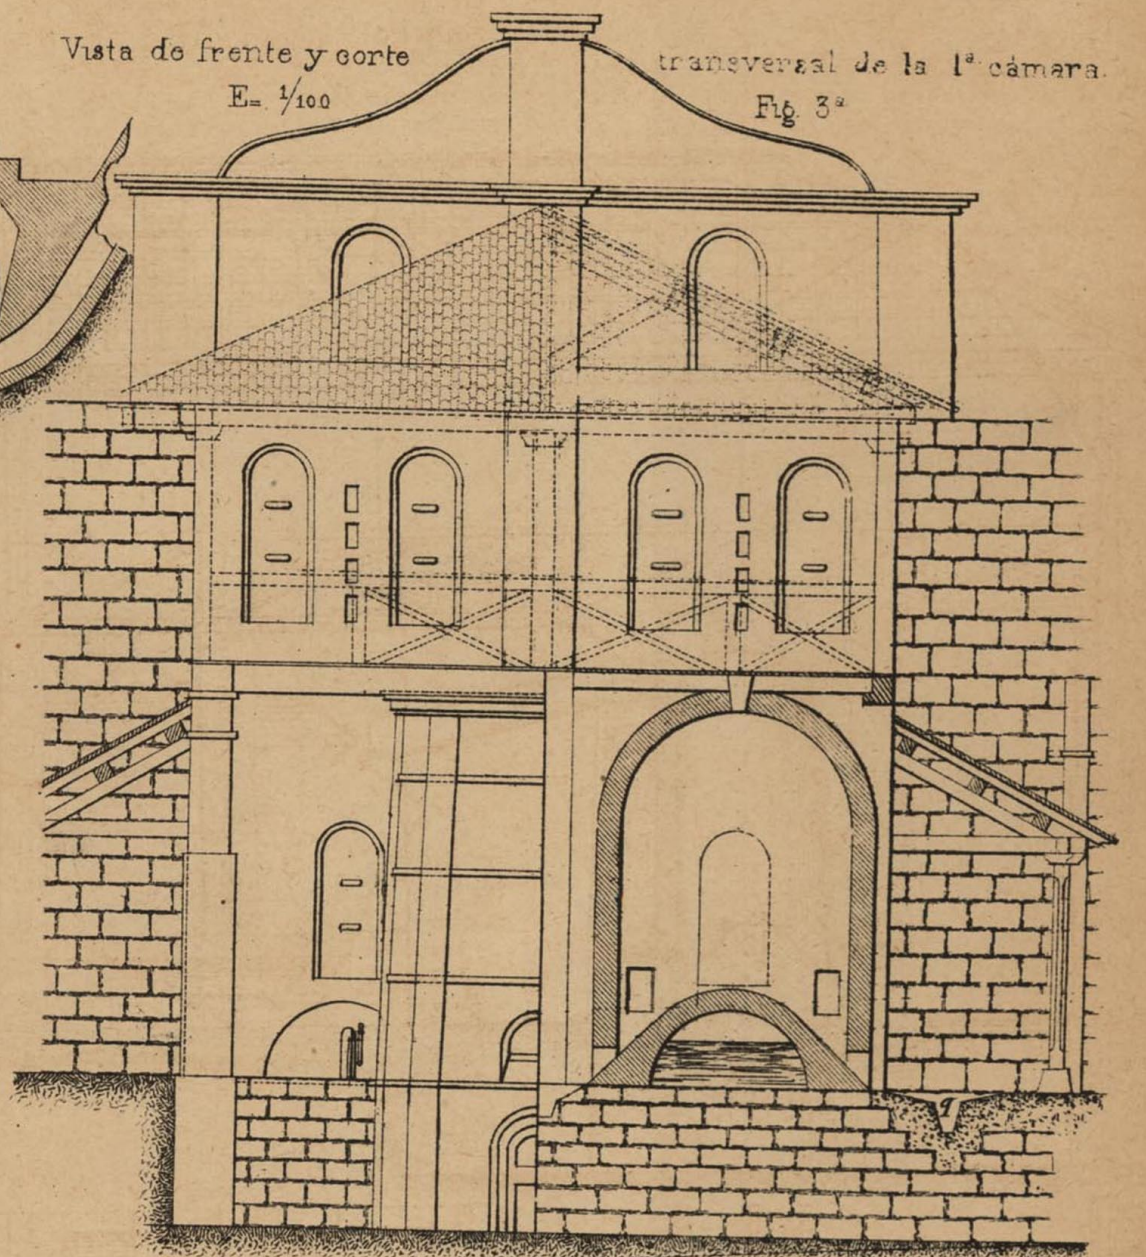 Vista de frente y corte transversal de la 1ª cámara.
E= 1/100
Fig. 3ª
q